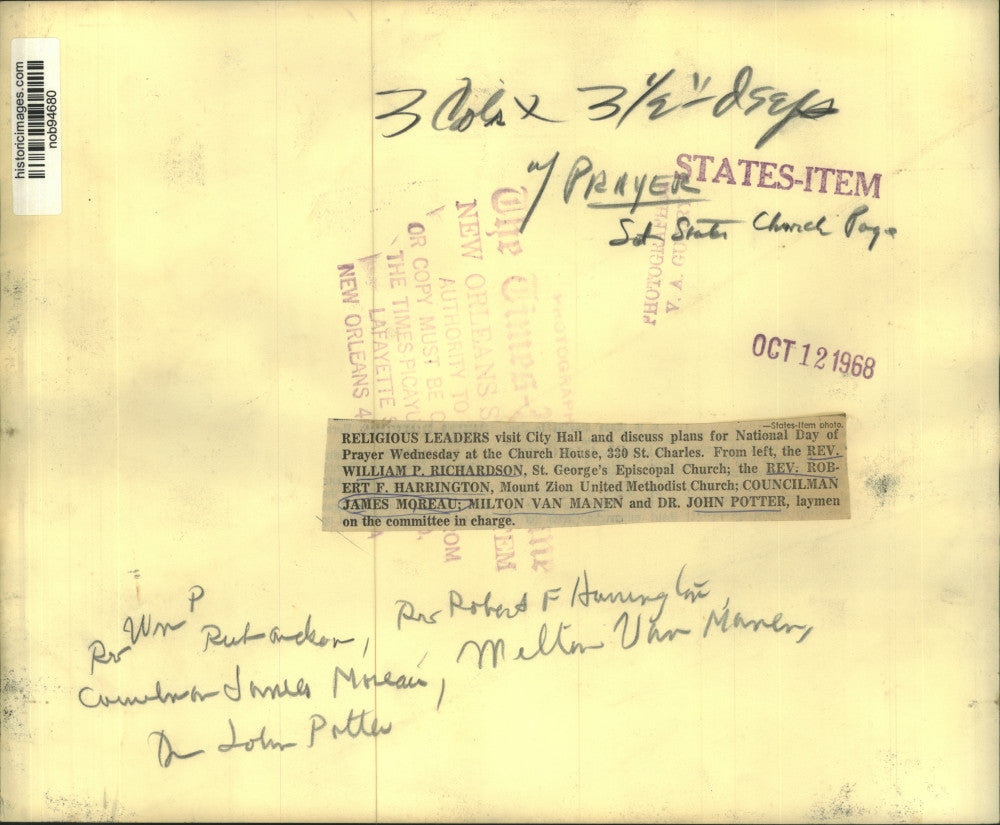 historicimages.com
nob94680
3 Cols x 3 1/2" deep
w/ PRAYER
STATES-ITEM
Sat States Church Page
PHOTOGRAPH
V. A. G
The Times-
NEW ORLEANS S
AUTHORITY TO
OR COPY MUST BE
THE TIMES PICAYU
LAFAYETTE
NEW ORLEANS 4
PHOTOGRAPH
OCT 12 1968
—States-Item photo.
RELIGIOUS LEADERS visit City Hall and discuss plans for National Day of
Prayer Wednesday at the Church House, 330 St. Charles. From left, the REV.
WILLIAM P. RICHARDSON, St. George's Episcopal Church; the REV. ROB-
ERT F. HARRINGTON, Mount Zion United Methodist Church; COUNCILMAN
JAMES MOREAU; MILTON VAN MANEN and DR. JOHN POTTER, laymen
on the committee in charge.
Rev Wm P Richardson, Rev Robert F Harrington,
Councilman James Moreau, Milton Van Manen,
Dr John Potter